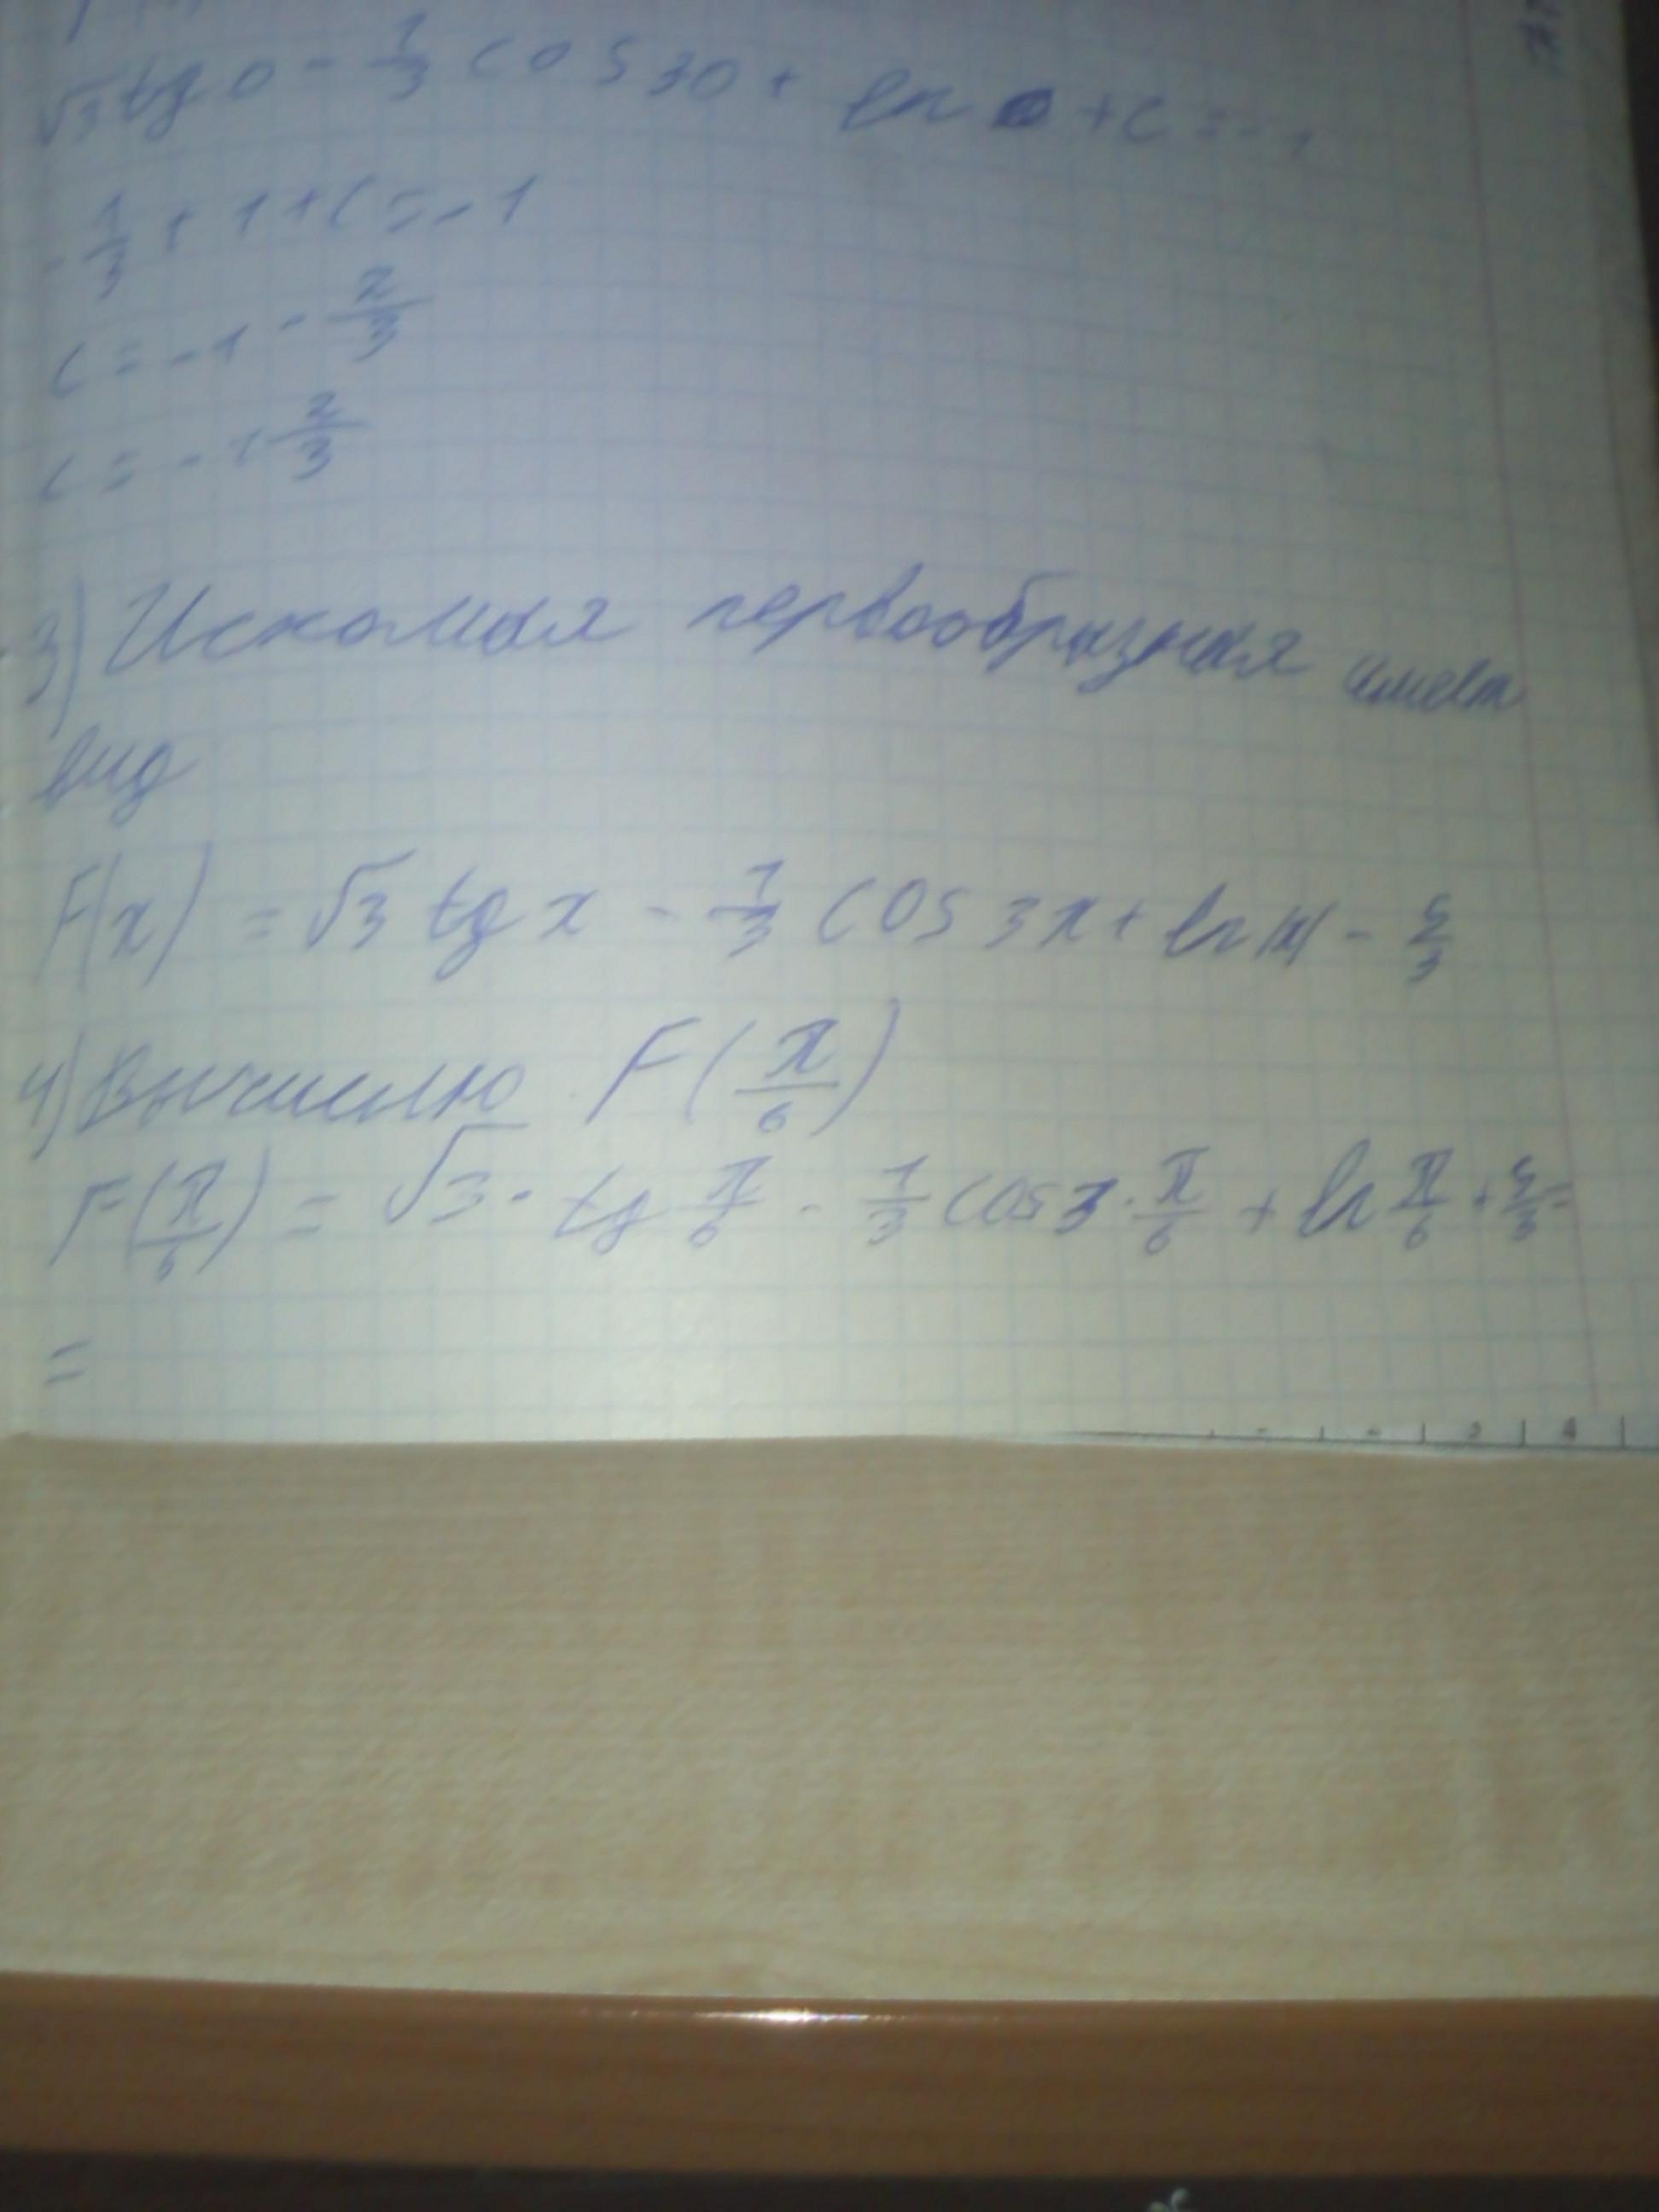 √3 tg 0 - 1/3 cos 30 + ln 0 + C = -1
- 1/3 + 1 + C = -1
C = -1 - 2/3
C = -1 2/3
3) Искомая первообразная имеет
вид
F(x) = √3 tg x - 1/3 cos 3x + ln |x| - 5/3
4) Вычислю F(π/6)
F(π/6) = √3 · tg π/6 - 1/3 cos 3 · π/6 + ln π/6 + 5/3 =
=